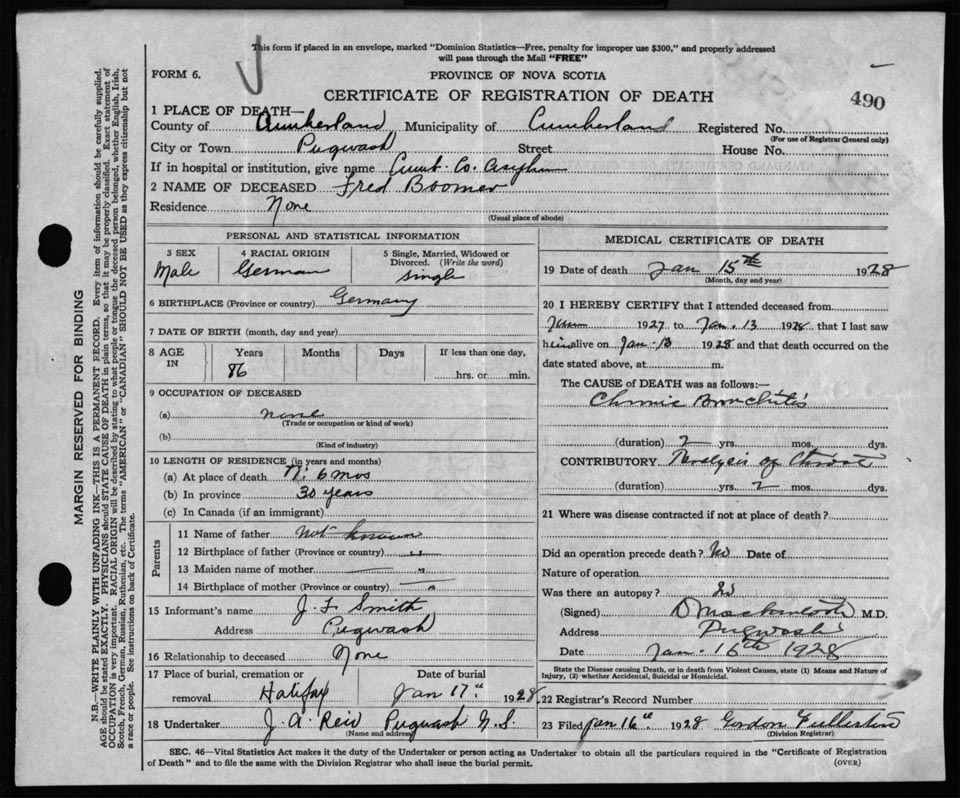 This form if placed in an envelope, marked "Dominion Statistics—Free, penalty for improper use $300," and properly addressed
will pass through the Mail "FREE"
FORM 6.
PROVINCE OF NOVA SCOTIA
CERTIFICATE OF REGISTRATION OF DEATH
490
1 PLACE OF DEATH—
County of Cumberland Municipality of Cumberland Registered No.
(For use of Registrar General only)
City or Town Pugwash Street House No.
If in hospital or institution, give name Cumb. Co. Asylum
2 NAME OF DECEASED Fred Boomer
Residence None
(Usual place of abode)
PERSONAL AND STATISTICAL INFORMATION
3 SEX Male
4 RACIAL ORIGIN German
5 Single, Married, Widowed or
Divorced. (Write the word)
single
6 BIRTHPLACE (Province or country) Germany
7 DATE OF BIRTH (month, day and year)
8 AGE IN
Years Months Days If less than one day,
86 hrs. or min.
9 OCCUPATION OF DECEASED
(a) none
(Trade or occupation or kind of work)
(b)
(Kind of industry)
10 LENGTH OF RESIDENCE (in years and months)
(a) At place of death 6 mos
(b) In province 30 years
(c) In Canada (if an immigrant)
Parents
11 Name of father not known
12 Birthplace of father (Province or country) "
13 Maiden name of mother "
14 Birthplace of mother (Province or country) "
15 Informant's name J. F. Smith
Address Pugwash
16 Relationship to deceased None
17 Place of burial, cremation or Date of burial
removal Halifax Jan 17th 1928
18 Undertaker J. A. Reid Pugwash N.S.
(Name and address)
MEDICAL CERTIFICATE OF DEATH
19 Date of death Jan 15th 1928
(Month, day and year)
20 I HEREBY CERTIFY that I attended deceased from
1927 to Jan. 13 1928 that I last saw
him alive on Jan. 13 1928 and that death occurred on the
date stated above, at m.
The CAUSE of DEATH was as follows:—
Chronic Bronchitis
(duration) 2 yrs. mos. dys.
CONTRIBUTORY Paralysis of
(duration) yrs. 2 mos. dys.
21 Where was disease contracted if not at place of death?
Did an operation precede death? No Date of
Nature of operation
Was there an autopsy? No
(Signed) D Mackintosh M.D.
Address Pugwash
Date Jan. 16th 1928
State the Disease causing Death, or in death from Violent Causes, state (1) Means and Nature of
Injury, (2) whether Accidental, Suicidal or Homicidal.
22 Registrar's Record Number
23 Filed Jan 16th 1928 Gordon Fullerton
(Division Registrar)
SEC. 46—Vital Statistics Act makes it the duty of the Undertaker or person acting as Undertaker to obtain all the particulars required in the "Certificate of Registration
of Death" and to file the same with the Division Registrar who shall issue the burial permit.
(OVER)
MARGIN RESERVED FOR BINDING
N.B.—WRITE PLAINLY WITH UNFADING INK—THIS IS A PERMANENT RECORD. Every item of information should be carefully supplied.
AGE should be stated EXACTLY. PHYSICIANS should STATE CAUSE OF DEATH in plain terms, so that it may be properly classified. Exact statement of
OCCUPATION is very important. RACIAL ORIGIN will be described by stating to what people or tongue the deceased person belonged, whether English, Irish,
Scotch, French, German, Russian, Ruthenian, etc. The terms "AMERICAN" or "CANADIAN" SHOULD NOT BE USED as they express citizenship but not
a race or people. See instructions on back of Certificate.